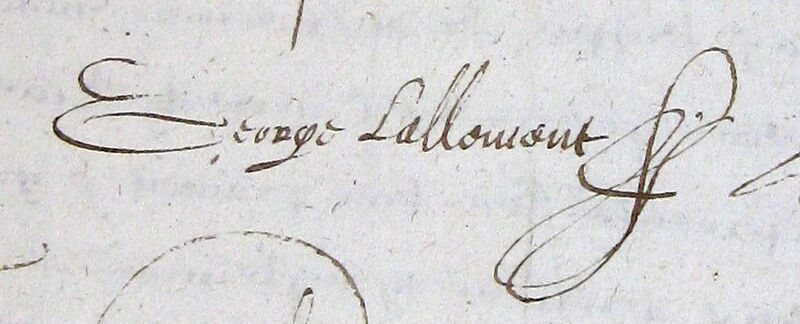 George Lallemant